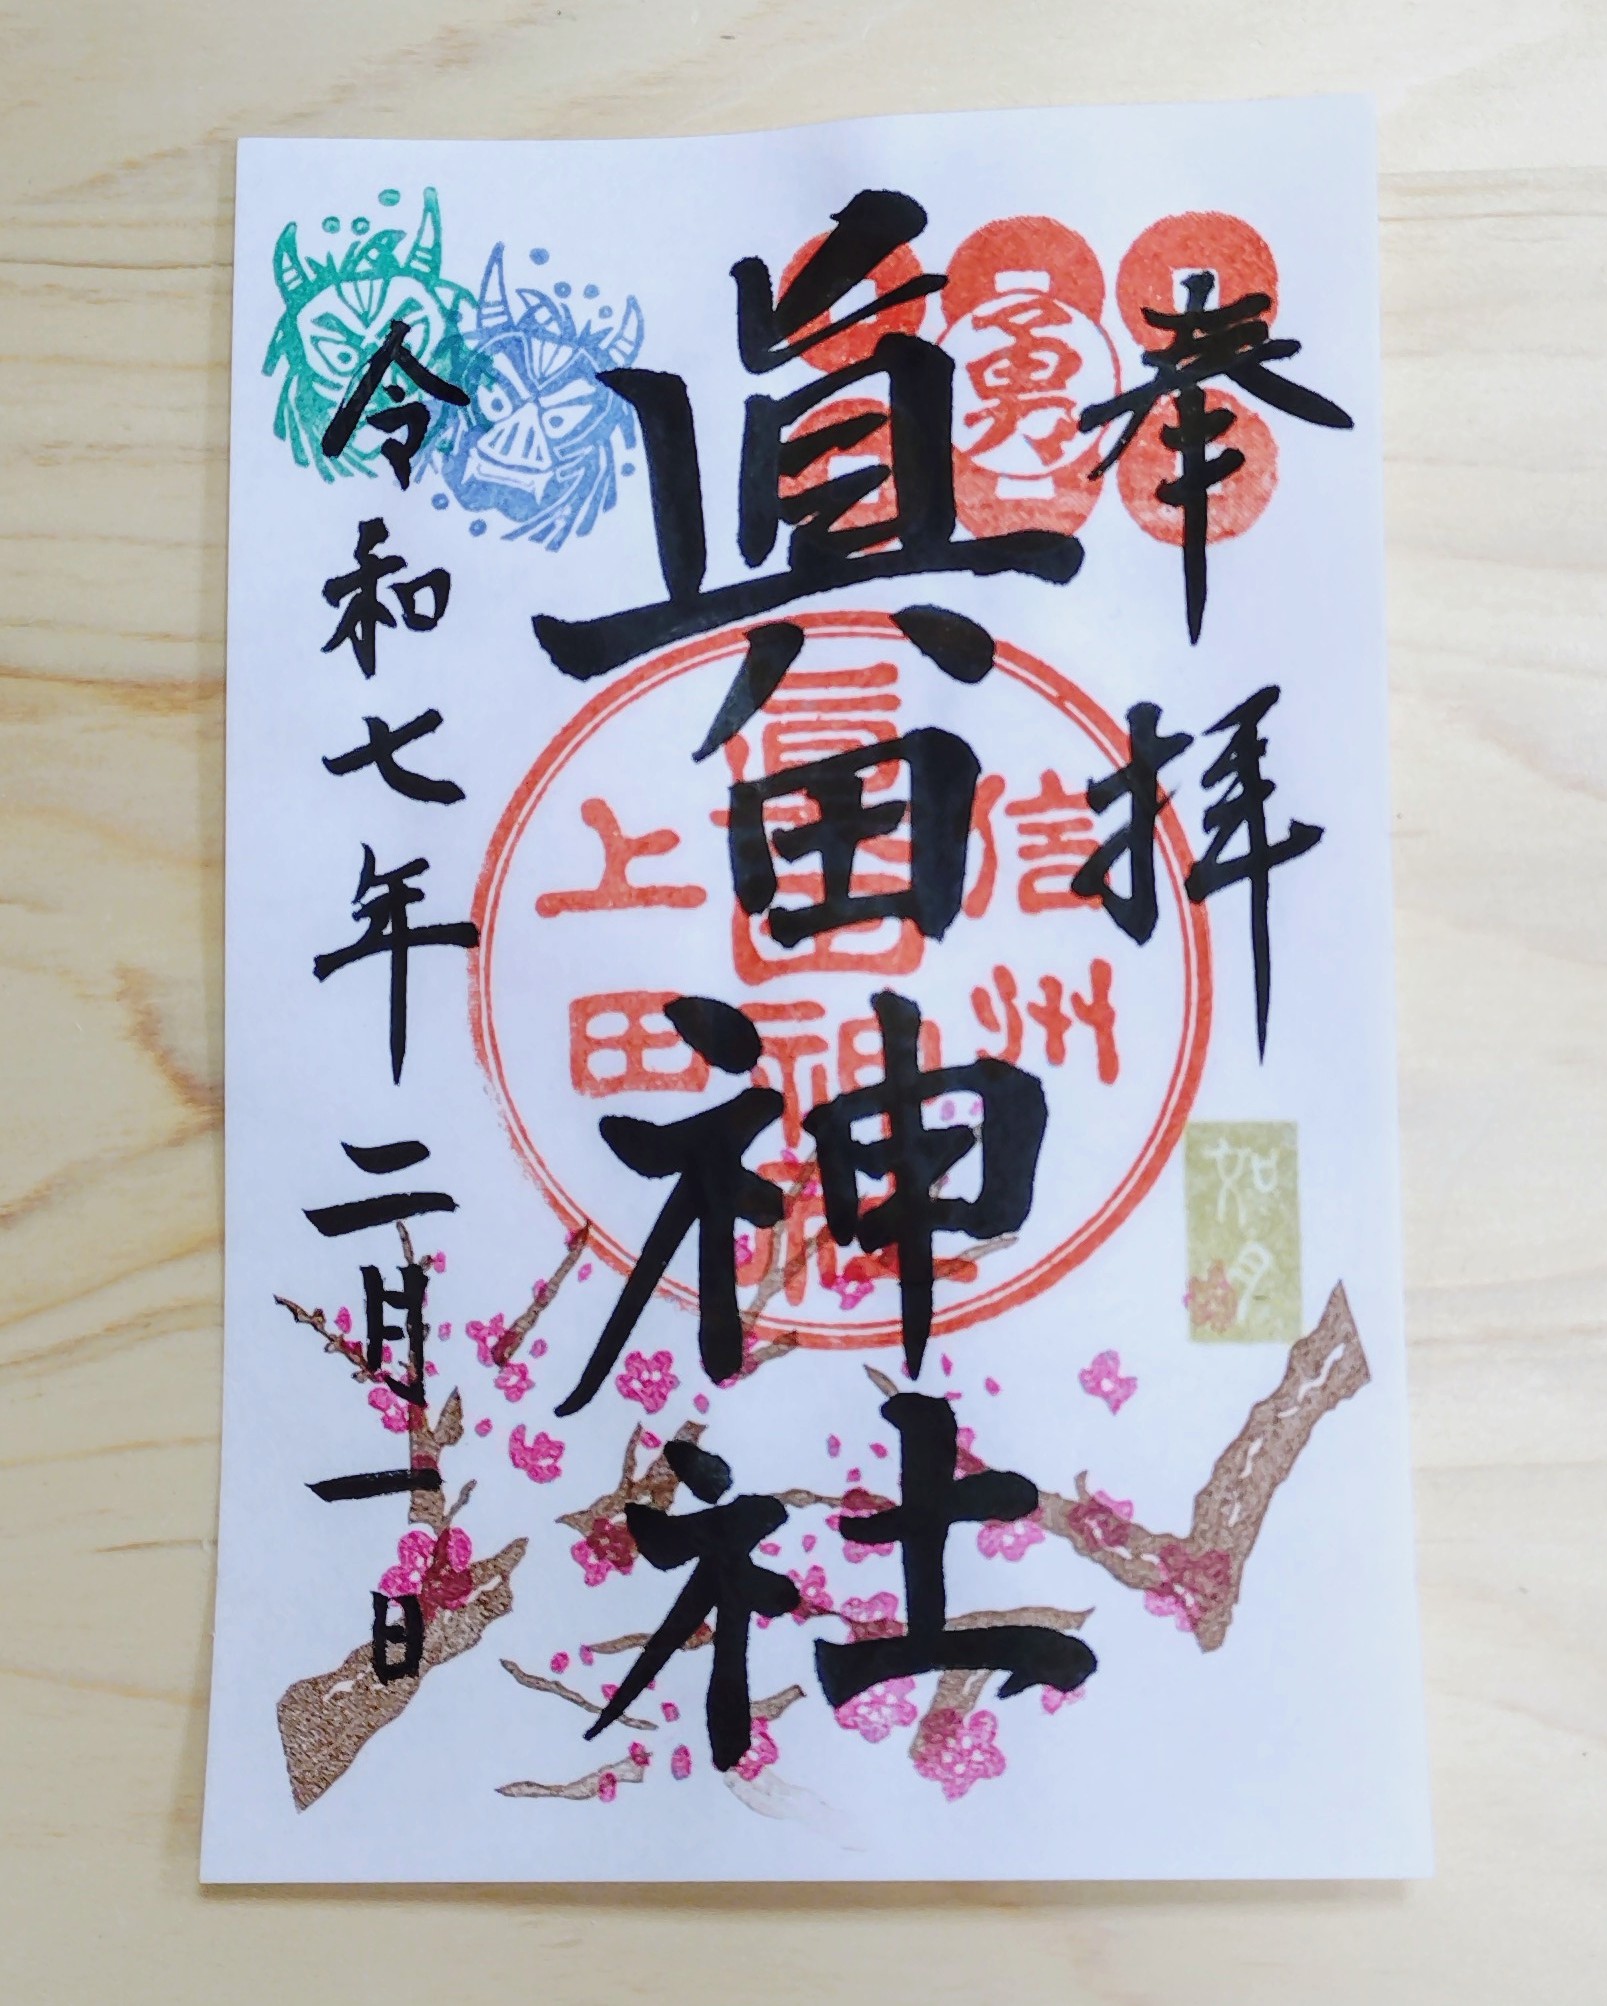 奉拝
勇
眞田神社
信州
眞田神社
上田
如月
令和七年二月一日